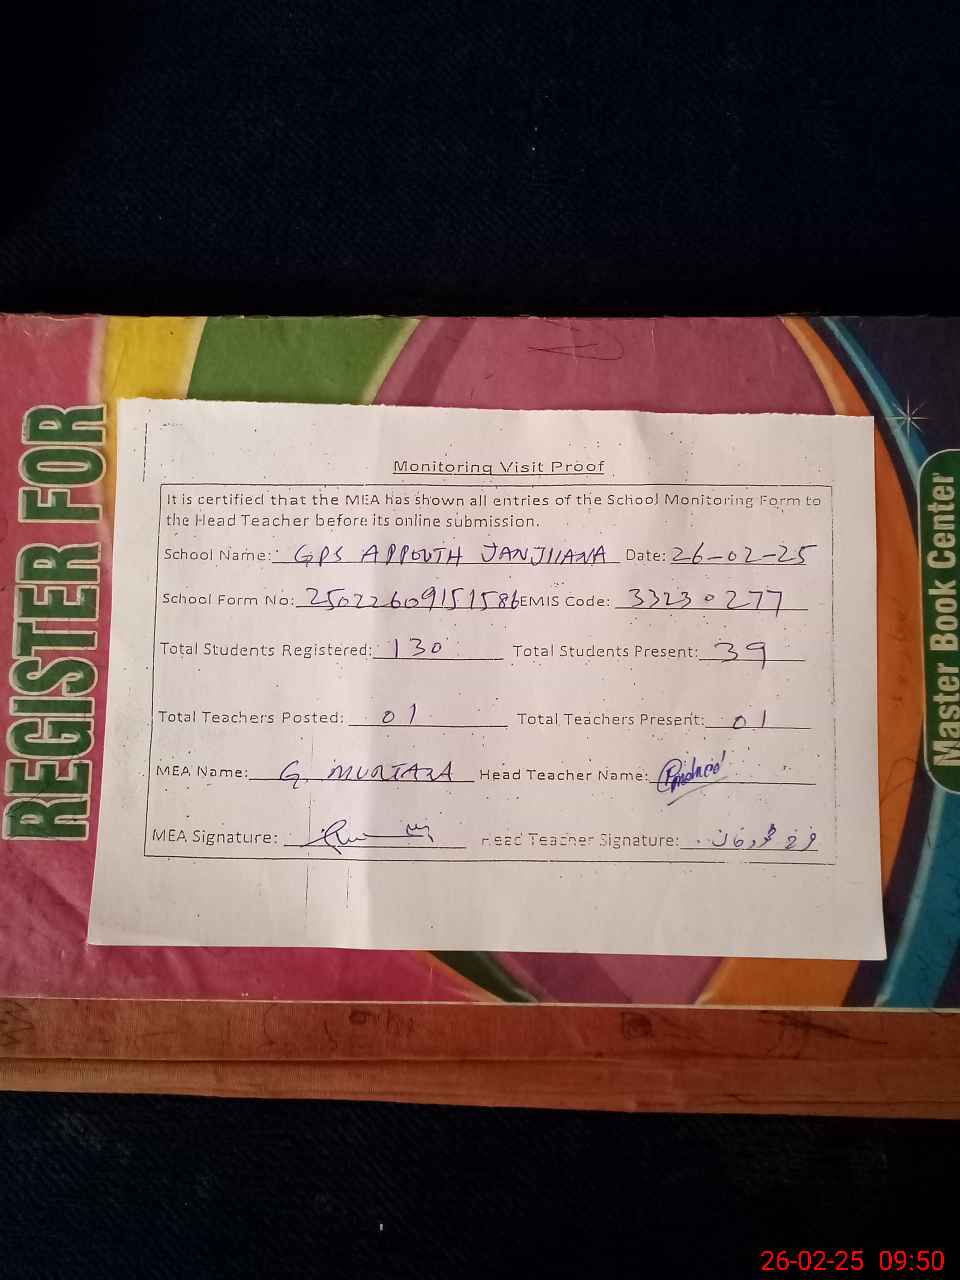 REGISTER FOR
Monitoring Visit Proof
It is certified that the MEA has shown all entries of the School Monitoring Form to
the Head Teacher before its online submission.
School Name: GPS APPOUTH JANJIANA Date: 26-02-25
School Form No: 25022609151586 EMIS Code: 33230277
Total Students Registered: 130 Total Students Present: 39
Total Teachers Posted: 01 Total Teachers Present: 01
MEA Name: G. MURTAZA Head Teacher Name:
MEA Signature: Head Teacher Signature:
Master Book Center
26-02-25 09:50